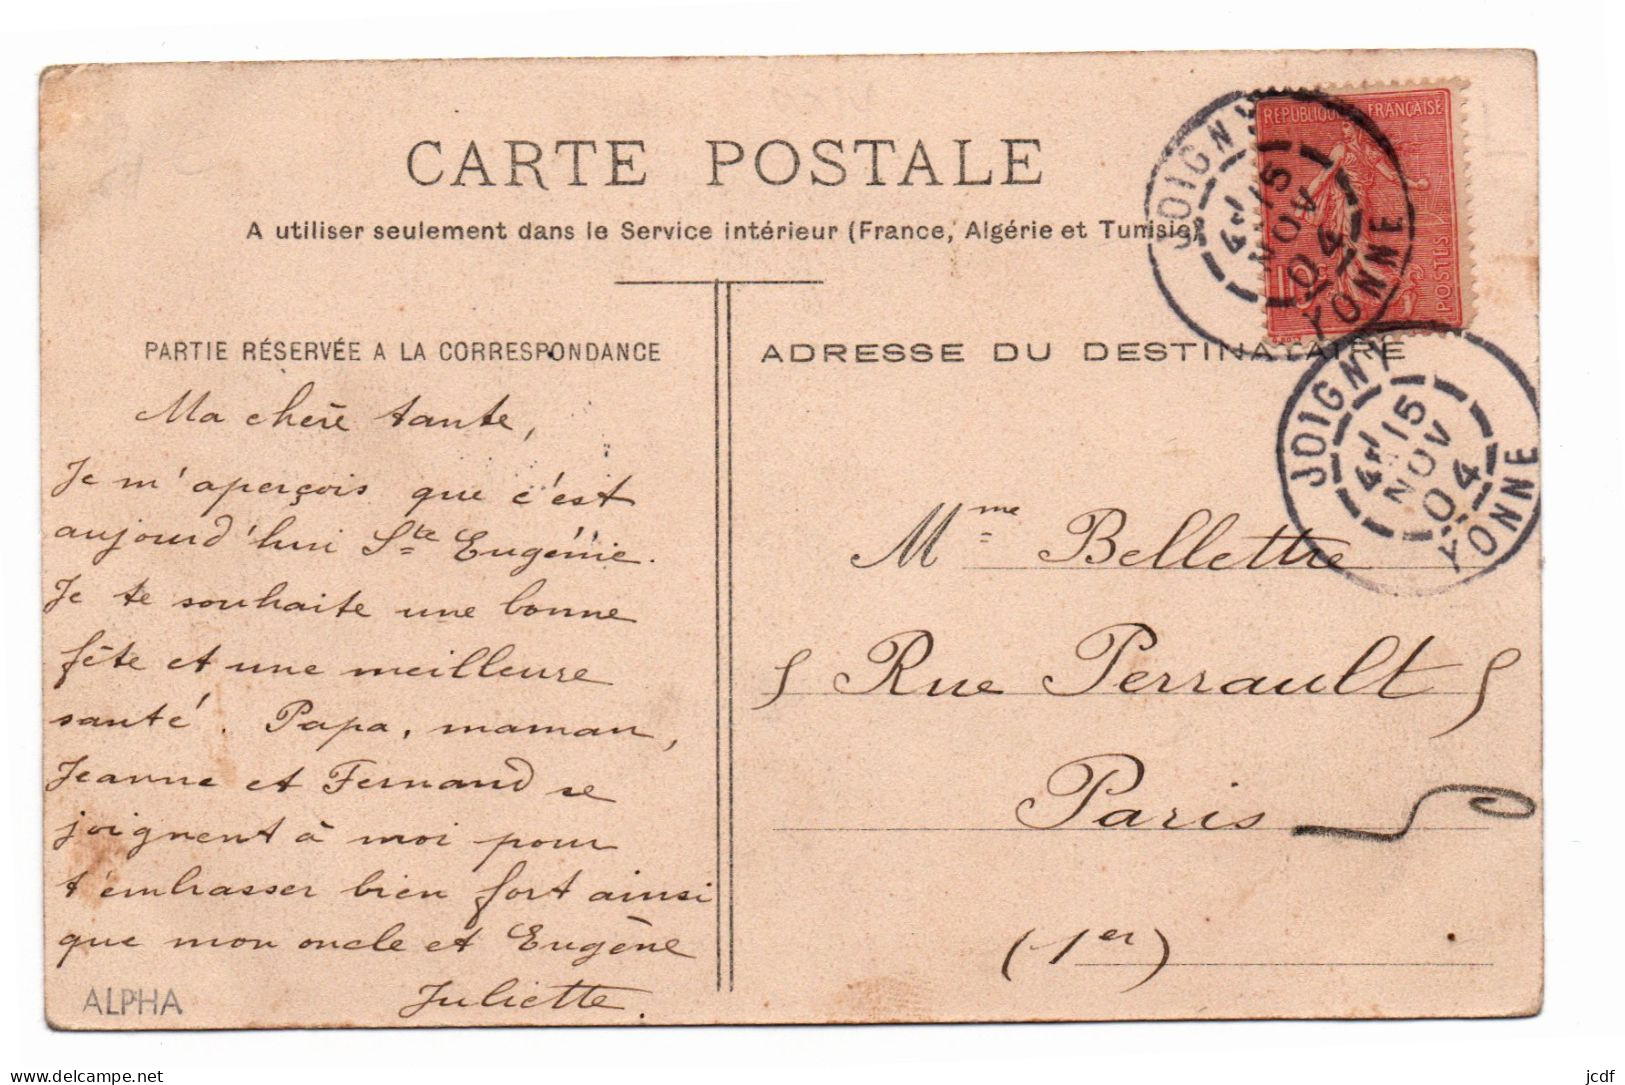 CARTE POSTALE
A utiliser seulement dans le Service intérieur (France, Algérie et Tunisie)
RÉPUBLIQUE FRANÇAISE
10c
POSTES
JOIGNY
15
NOV
04
YONNE
JOIGNY
15
NOV
04
YONNE
PARTIE RÉSERVÉE A LA CORRESPONDANCE
Ma chère tante,
Je m'aperçois que c'est
aujourd'hui Ste Eugénie.
Je te souhaite une bonne
fête et une meilleure
santé. Papa, maman,
Jeanne et Fernand se
joignent à moi pour
t'embrasser bien fort ainsi
que mon oncle et Eugène
Juliette.
ALPHA
ADRESSE DU DESTINATAIRE
Mme Bellettre
5 Rue Perrault 5
Paris
(1er)
delcampe.net
jcdf